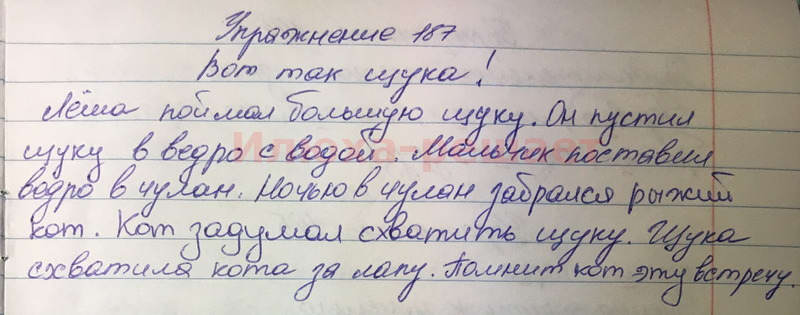 Упражнение 187
Вот так щука!
Лёша поймал большую щуку. Он пустил
щуку в ведро с водой. Мальчик поставил
ведро в чулан. Ночью в чулан забрался рыжий
кот. Кот задумал схватить щуку. Щука
схватила кота за лапу. Помнит кот эту встречу.
Илюха-решает